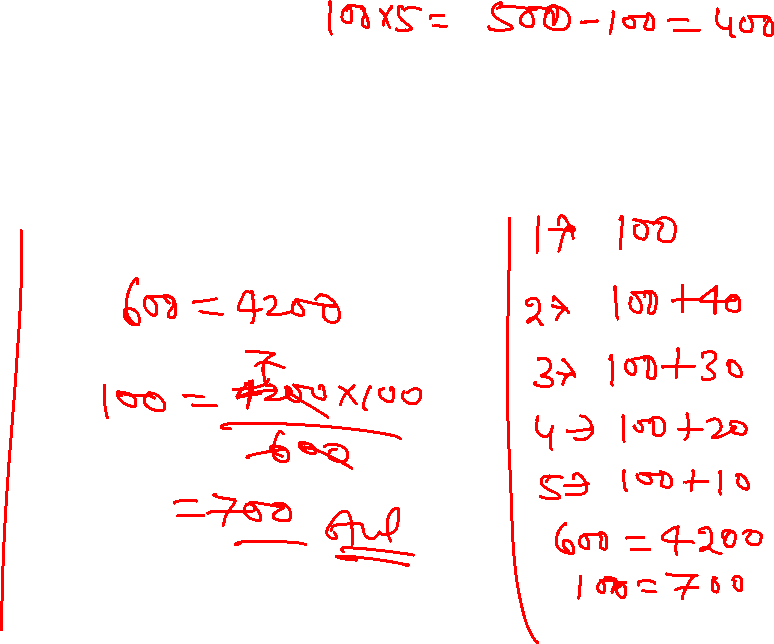 100×5= 500-100=400
600=4200
7
100=4200×100
600
=700 Ans
1→ 100
2→ 100+40
3→ 100+30
4→ 100+20
5→ 100+10
600=4200
100=700